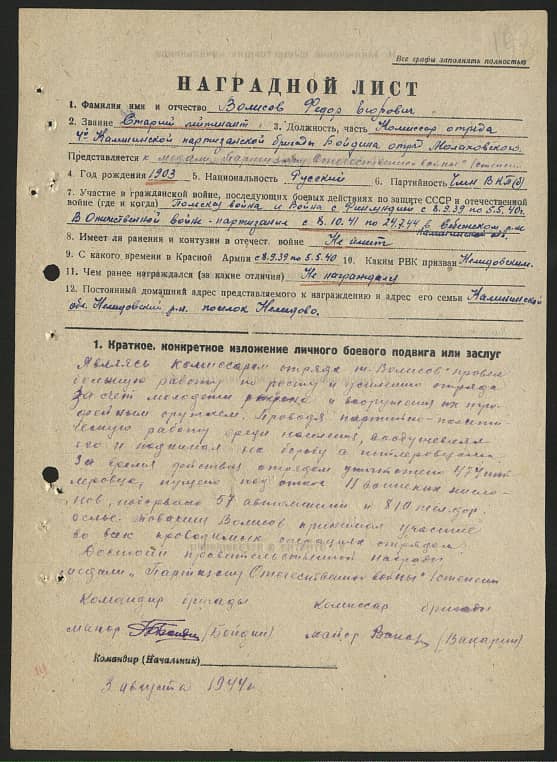 Все графы заполнять полностью
НАГРАДНОЙ ЛИСТ
1. Фамилия имя и отчество Волисов Федор Егорович
2. Звание Старший лейтенант 3. Должность, часть Комиссар отряда
4й Калининской партизанской бригады Бойдина отряд
Представляется к медали „Партизану Отечественной войны" I степени
4. Год рождения 1903 5. Национальность Русский 6. Партийность Член ВКП(б)
7. Участие в гражданской войне, последующих боевых действиях по защите СССР и отечественной
войне (где и когда) Польская война и Война с Финляндией с 8.9.39 по 5.5.40г.
В Отечественной войне-партизания с 8.10.41 по 24.7.44 в р-не
8. Имеет ли ранения и контузии в отечест. войне Не имеет
9. С какого времени в Красной Армии с 8.9.39 по 5.5.40 10. Каким РВК призван Нелидовским.
11. Чем ранее награждался (за какие отличия) Не награждался
12. Постоянный домашний адрес представляемого к награждению и адрес его семьи Калининской
обл. Нелидовский р-н. поселок Нелидово.
1. Краткое, конкретное изложение личного боевого подвига или заслуг
Являясь комиссаром отряда т. Волисов провел
большую работу по росту и усилению отряда
за счет молодежи и вооружения их
оружием. Проводя партийно-полити-
ческую работу среди населения, воодушевлял
его и поднимал на борьбу с гитлеровцами.
За время действия отрядом уничтожено 474 гит-
леровца, пущено под откос 11 воинских эшело-
нов, подорвано 57 автомашин и 810 жел.дор.
рельс. Товарищ Волисов принимал участие
во всех проводимых операциях отрядом.
Достоин правительственной награды
медали „Партизану Отечественной войны" I степени
Командир бригады комиссар бригады
майор (Бойдин) майор (Вакарин)
Командир (Начальник)
3 августа 1944г.